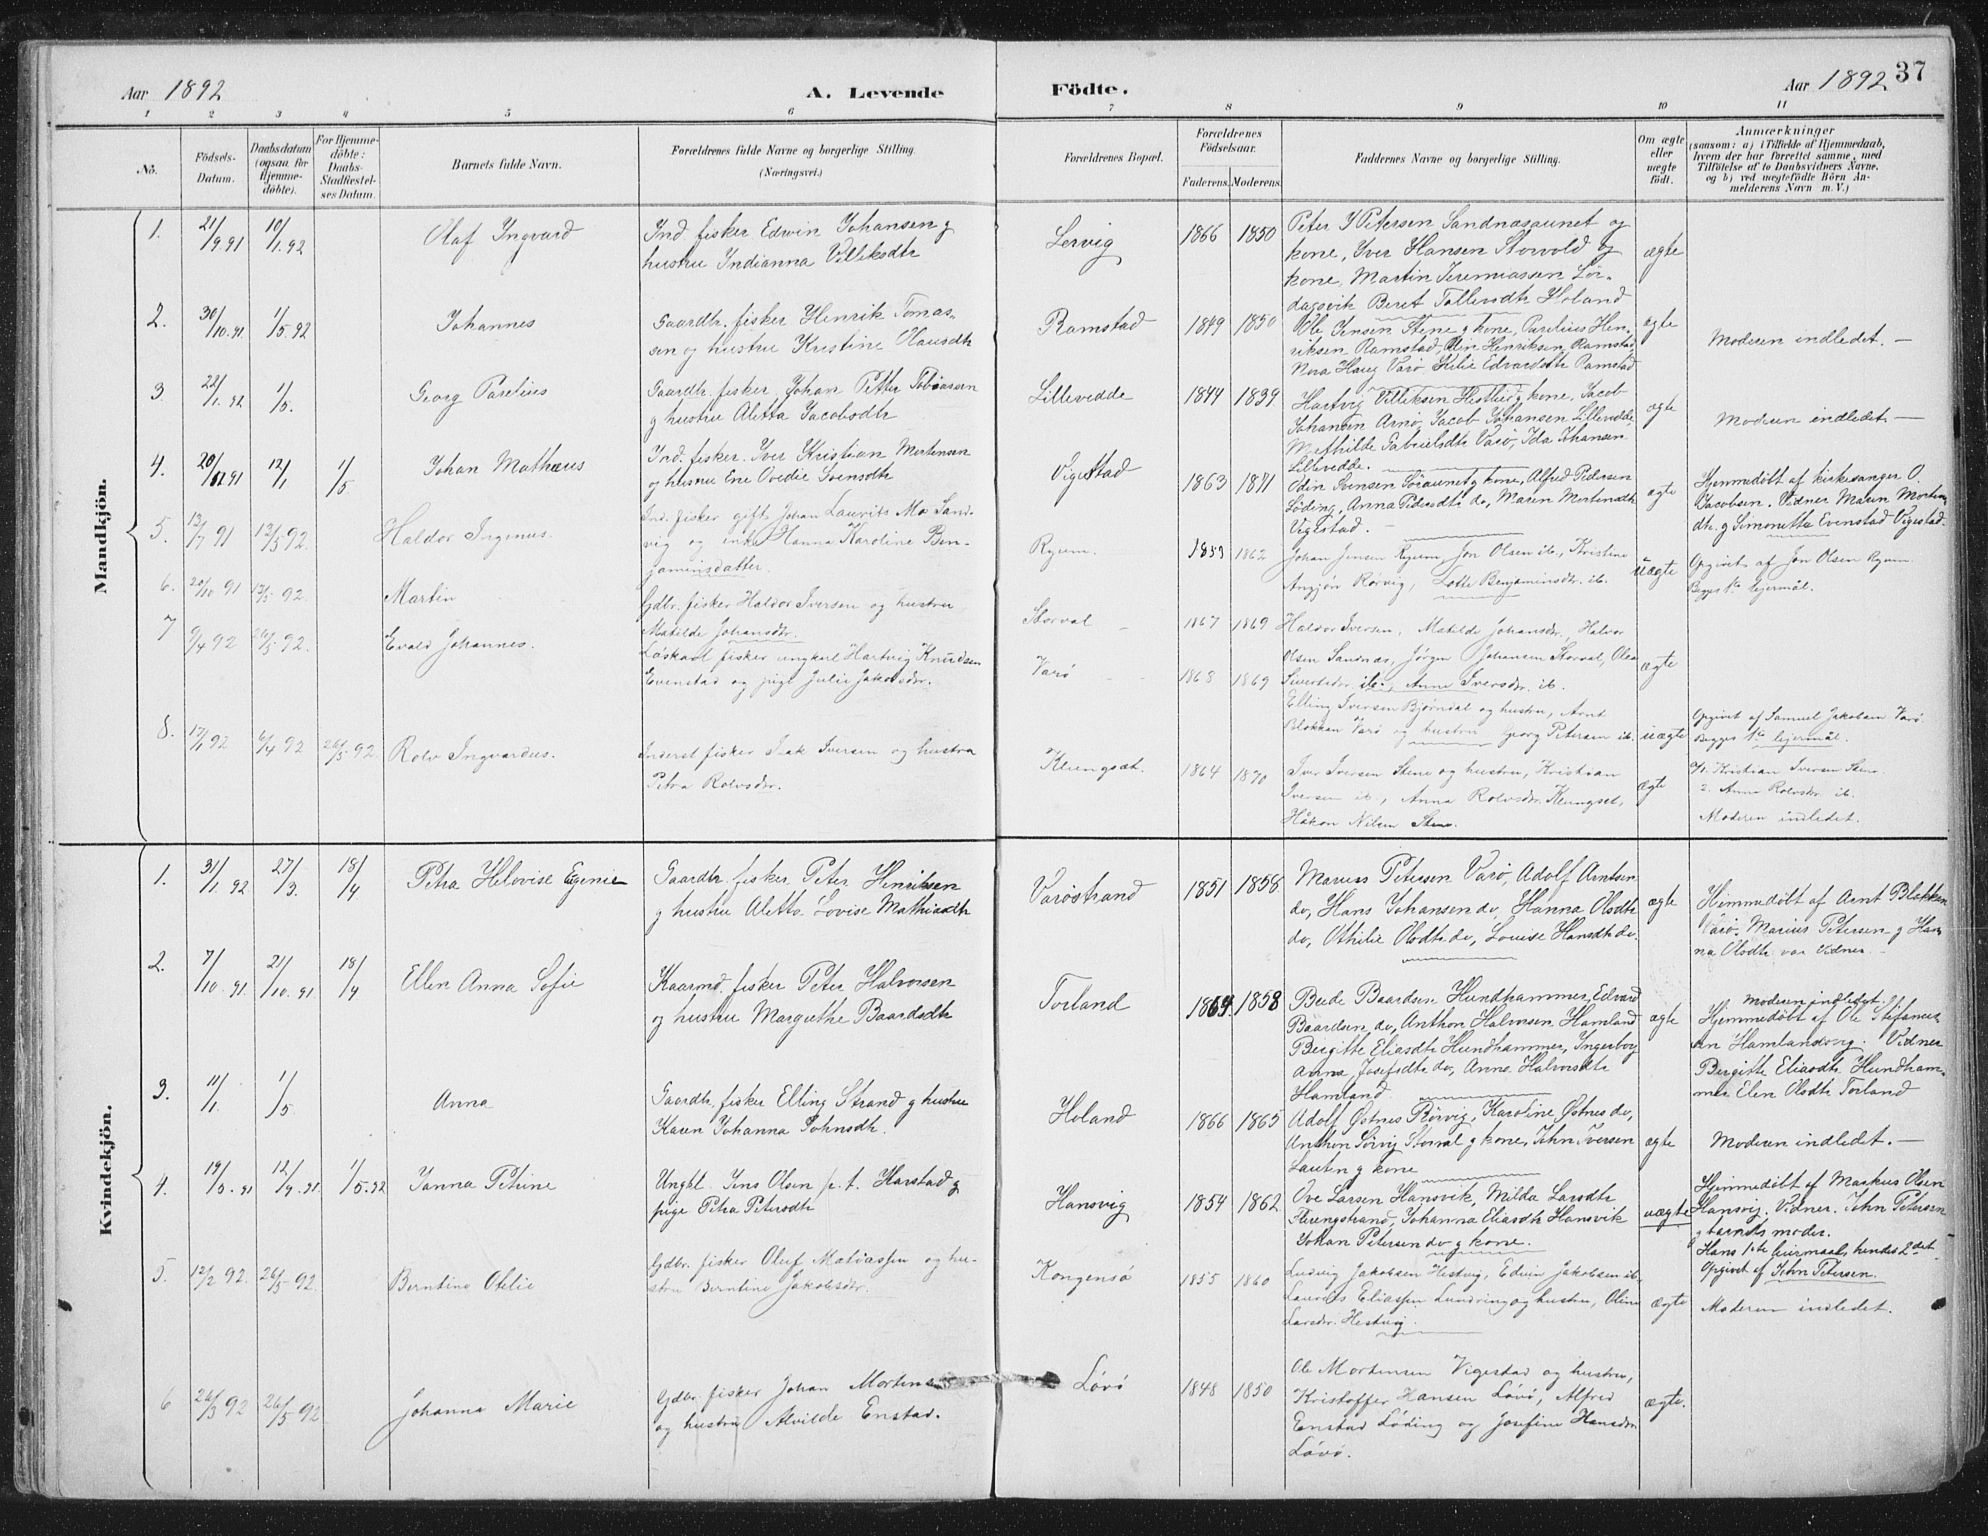 Aar 1892
A. Levende
Födte.
Aar 1892
37
1 2 3 4 5 6 7 8 9 10 11
No.
Födsels-Datum.
Daabsdatum (ogsaa for Hjemme-döbte).
For Hjemme-döbte: Daabs-Stadfæstel-ses Datum.
Barnets fulde Navn.
Forældrenes fulde Navne og borgerlige Stilling.
(Næringsvei.)
Forældrenes Bopæl.
Forældrenes Födselsaar.
Faderens. Moderens.
Faddernes Navne og borgerlige Stilling.
Om ægte eller uægte födt.
Anmærkninger
(saasom: a) i Tilfælde af Hjemmedaab,
hvem der har forrettet samme, med
Tilföielse af to Daabsvidners Navne,
og b) ved uægtefödte Börn An-
melderens Navn m. V.)
Mandkjön.
1. 21/9 91 10/1 92 Olaf Ingvard
Ind. fisker Edwin Johansen g
hustru Indianna Villiksdtr
Lervig 1866 1850
Peter J Petersen Sandnæsaunet og
kone, Iver Hansen Storvold og
kone, Martin Jeremiassen Lør-
dagsvik Beret Tollevsdtr Holand
ægte
2. 30/10.91 1/5.92 Johannes
Gaardbr. fisker Henrik Tomas-
sen og hustru Kristine Olausdtr
Ramstad 1849 1850
Ole Jensen Stene g kone, Parelius Hen-
riksen Ramstad, Henriksen Ramstad
Nora Haug Varø Julie Edvardsdtr Ramstad
ægte
Moderen indledet. —
3 22/1.92 1/5. Georg Parelius
Gaardbr. fisker Johan Petter Tobiassen
g hustru Aletta Jacobsdtr
Lillevedde 1844 1839
Hartvig Villiksen g kone, Jacob
Johansen Arnø, Jacob Johansen Lillevedde,
Mathilde Gabrielsdtr Varø, Ida Johansen
Lillevedde.
ægte
Moderen indledet. —
4. 20/12 91 12/1 1/5 Johan Mathæus
Ind. fisker. Iver Kristian Mortensen
og hustru Ene Ovedie Svensdtr
Vigestad 1863 1871
Odin Svensen g kone, Alfred Pedersen
Løding, Anna Pedersdtr do, Maren Mortensdtr
Vigestad. —
ægte
Hjemmedøbt af kirkesanger O.
Jacobsen. Vidner Maren Mortens
dtr. g Simonette Evenstad Vigestad.
5. 13/7 91 13/5 92. Haldor Ingenus.
Ind. fisker gift Johan Laurits Mo Sand-
vig og enke Hanna Karoline Ben-
jaminsdatter.
Ryum. 1853 1862
Johan Jensen Ryum, Jon Olsen ib., Kristine
Angjøn Rørvig, Lotte Benjaminsdr. ib.
uægte
Opgivet af Jon Olsen Ryum.
Begges 1ste lejermål.
6. 20/10 91 13/5 92. Martin
Gdbr. fisker Haldor Iversen og hustru
Matilde Johansdr.
Storval 1867 1869
Haldor Iversen, Matilde Johansdr, Halvor
Olsen Sandnæs, Jørgen Johansen Storval, Olea
Sivertsdr ib., Anne Iversdr. ib.
ægte
7 9/4 92 26/5 92. Evald Johannes.
Løskarl fisker ungkarl Hartvig Knudsen
Evenstad og pige Julie Jakobsdr.
Varø 1868 1869
Elling Iversen Bjørndal og hustru, Arnt
Blokkan Varø og hustru Georg Petersen ib.
uægte
Opgivet af Samuel Jakobsen Varø.
Begges 1ste lejermål.
8. 17/1 92 6/4 92 26/5 92 Rolv Ingvardus.
Inderst fisker Isak Iversen og hustru
Petra Rolvsdr.
Klungset. 1864 1870
Iver Iversen Stene og hustru, Kristian
Iversen ib., Anna Rolvsdr. Klungset,
Håkon Nilsen Stene.
ægte
Kristian Iversen Stene.
2. Anna Rolvsdr ib.
Moderen indledet.
Kvindekjön.
1. 31/1 92 27/3. 18/4 Petra Helovise Egenie
Gaardbr. fisker Peter Henriksen
g hustru Aletta Lovise Mathiasdtr
Varøstrand 1851 1858
Marius Petersen Varø, Adolf Arntsen
do, Hans Johansen do, Hanna Olsdtr
do, Othilie Olsdtr do, Louise Hansdtr do.
ægte
Hjemmedøbt af Arnt Blokken
Varø. Marius Petersen g Han-
na Olsdtr var Vidner. —
Moderen indledet.
2. 7/10.91 21/10.91 18/4 Ellen Anna Sofie
Kaarmd. fisker Peter Halvorsen
og hustru Margrethe Baardsdtr
Torland 1864 1858
Bæde Baardsen Hundhammer, Edvard
Baardsen do, Anthon Halvorsen Hamland
Bergitte Eliasdtr Hundhammer, Ingerborg
Anna Josefsdtr do, Anne Halvorsdtr
Hamland
ægte
Hjemmedøbt af Ole Stefanus-
sen Hamlandsvg. Vidner
Bergitte Eliasdtr Hundham-
mer Elen Olsdtr Torland
3. 11/1 1/5. Anna
Gaardbr. fisker Elling Strand g hustru
Karen Johanna Johnsdtr.
Holand 1866 1865
Adolf Øtnes Rørvig, Karoline Øtnes do,
Anthon Sørvig Storval g kone, John Iversen
Lauten g kone
ægte
Moderen indledet. —
4. 19/5.91 12/9.91 1/5.92 Janna Petrine
Ungkl. Jens Olsen p.t. Harstad g
pige Petra Petersdtr
Hansvig 1854 1862
Ove Larsen Hansvik, Milda Larsdtr
Flerengstrand, Johanna Eliasdtr Hansvik
Johan Petersen do g kone.
uægte
Hjemmedøbt af Markus Olsen
Hansvig. Vidner. John Petersen
g barnets moder.
Hans 1ste leiermaal, hendes 2det
Opgivet af John Petersen.
5. 12/2 92. 26/5 92. Berntine Otelie
Gdbr. fisker Oluf Matiassen og hu-
stru Berntine Jakobsdr.
Kongensø 1855 1860
Ludvig Jakobsen Hestvig, Edvin Jakobsen ib.
Laurits Eliassen Lundring og hustru, Oline
Larsdr. Hestvig.
ægte
Moderen indledet.
6 26/3 92 26/5 92 Johanna Marie
Gdbr. fisker Johan Mortens
og hustru Alvilde Enstad.
Løvø 1848 1850
Ole Mortensen Vigestad og hustru,
Kristoffer Hansen Løvø, Alfred
Enstad Løding og Josefine Hansdr.
Løvø.
ægte.